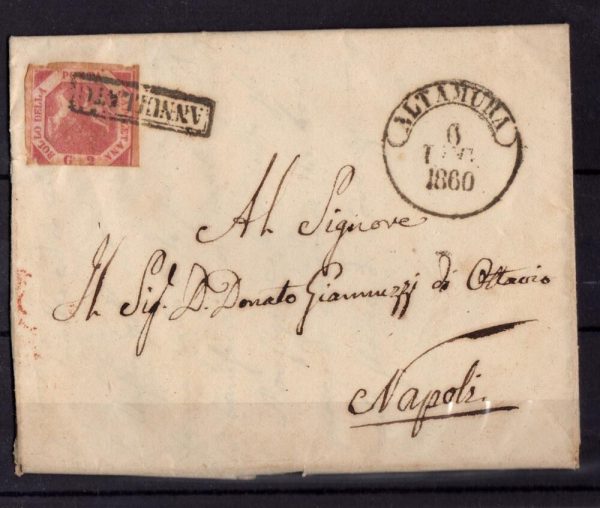 BOLLO DELLA POSTA NAPOLETANA
G. 2
ANNULLATO
ALTAMURA
6
1860
Al Signore
Il Sig. D. Donato Giannuzzi di Ottavio
Napoli